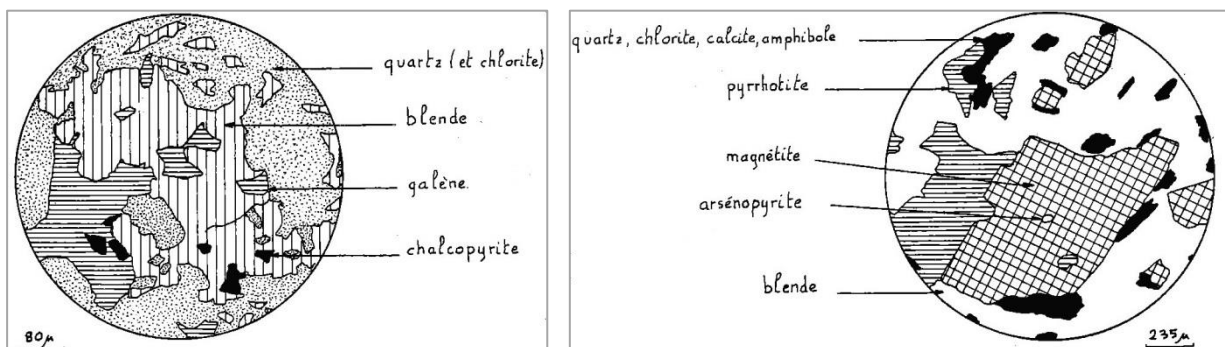 quartz (et chlorite)
blende
galène
chalcopyrite
80μ
quartz, chlorite, calcite, amphibole
pyrrhotite
magnétite
arsénopyrite
blende
235μ